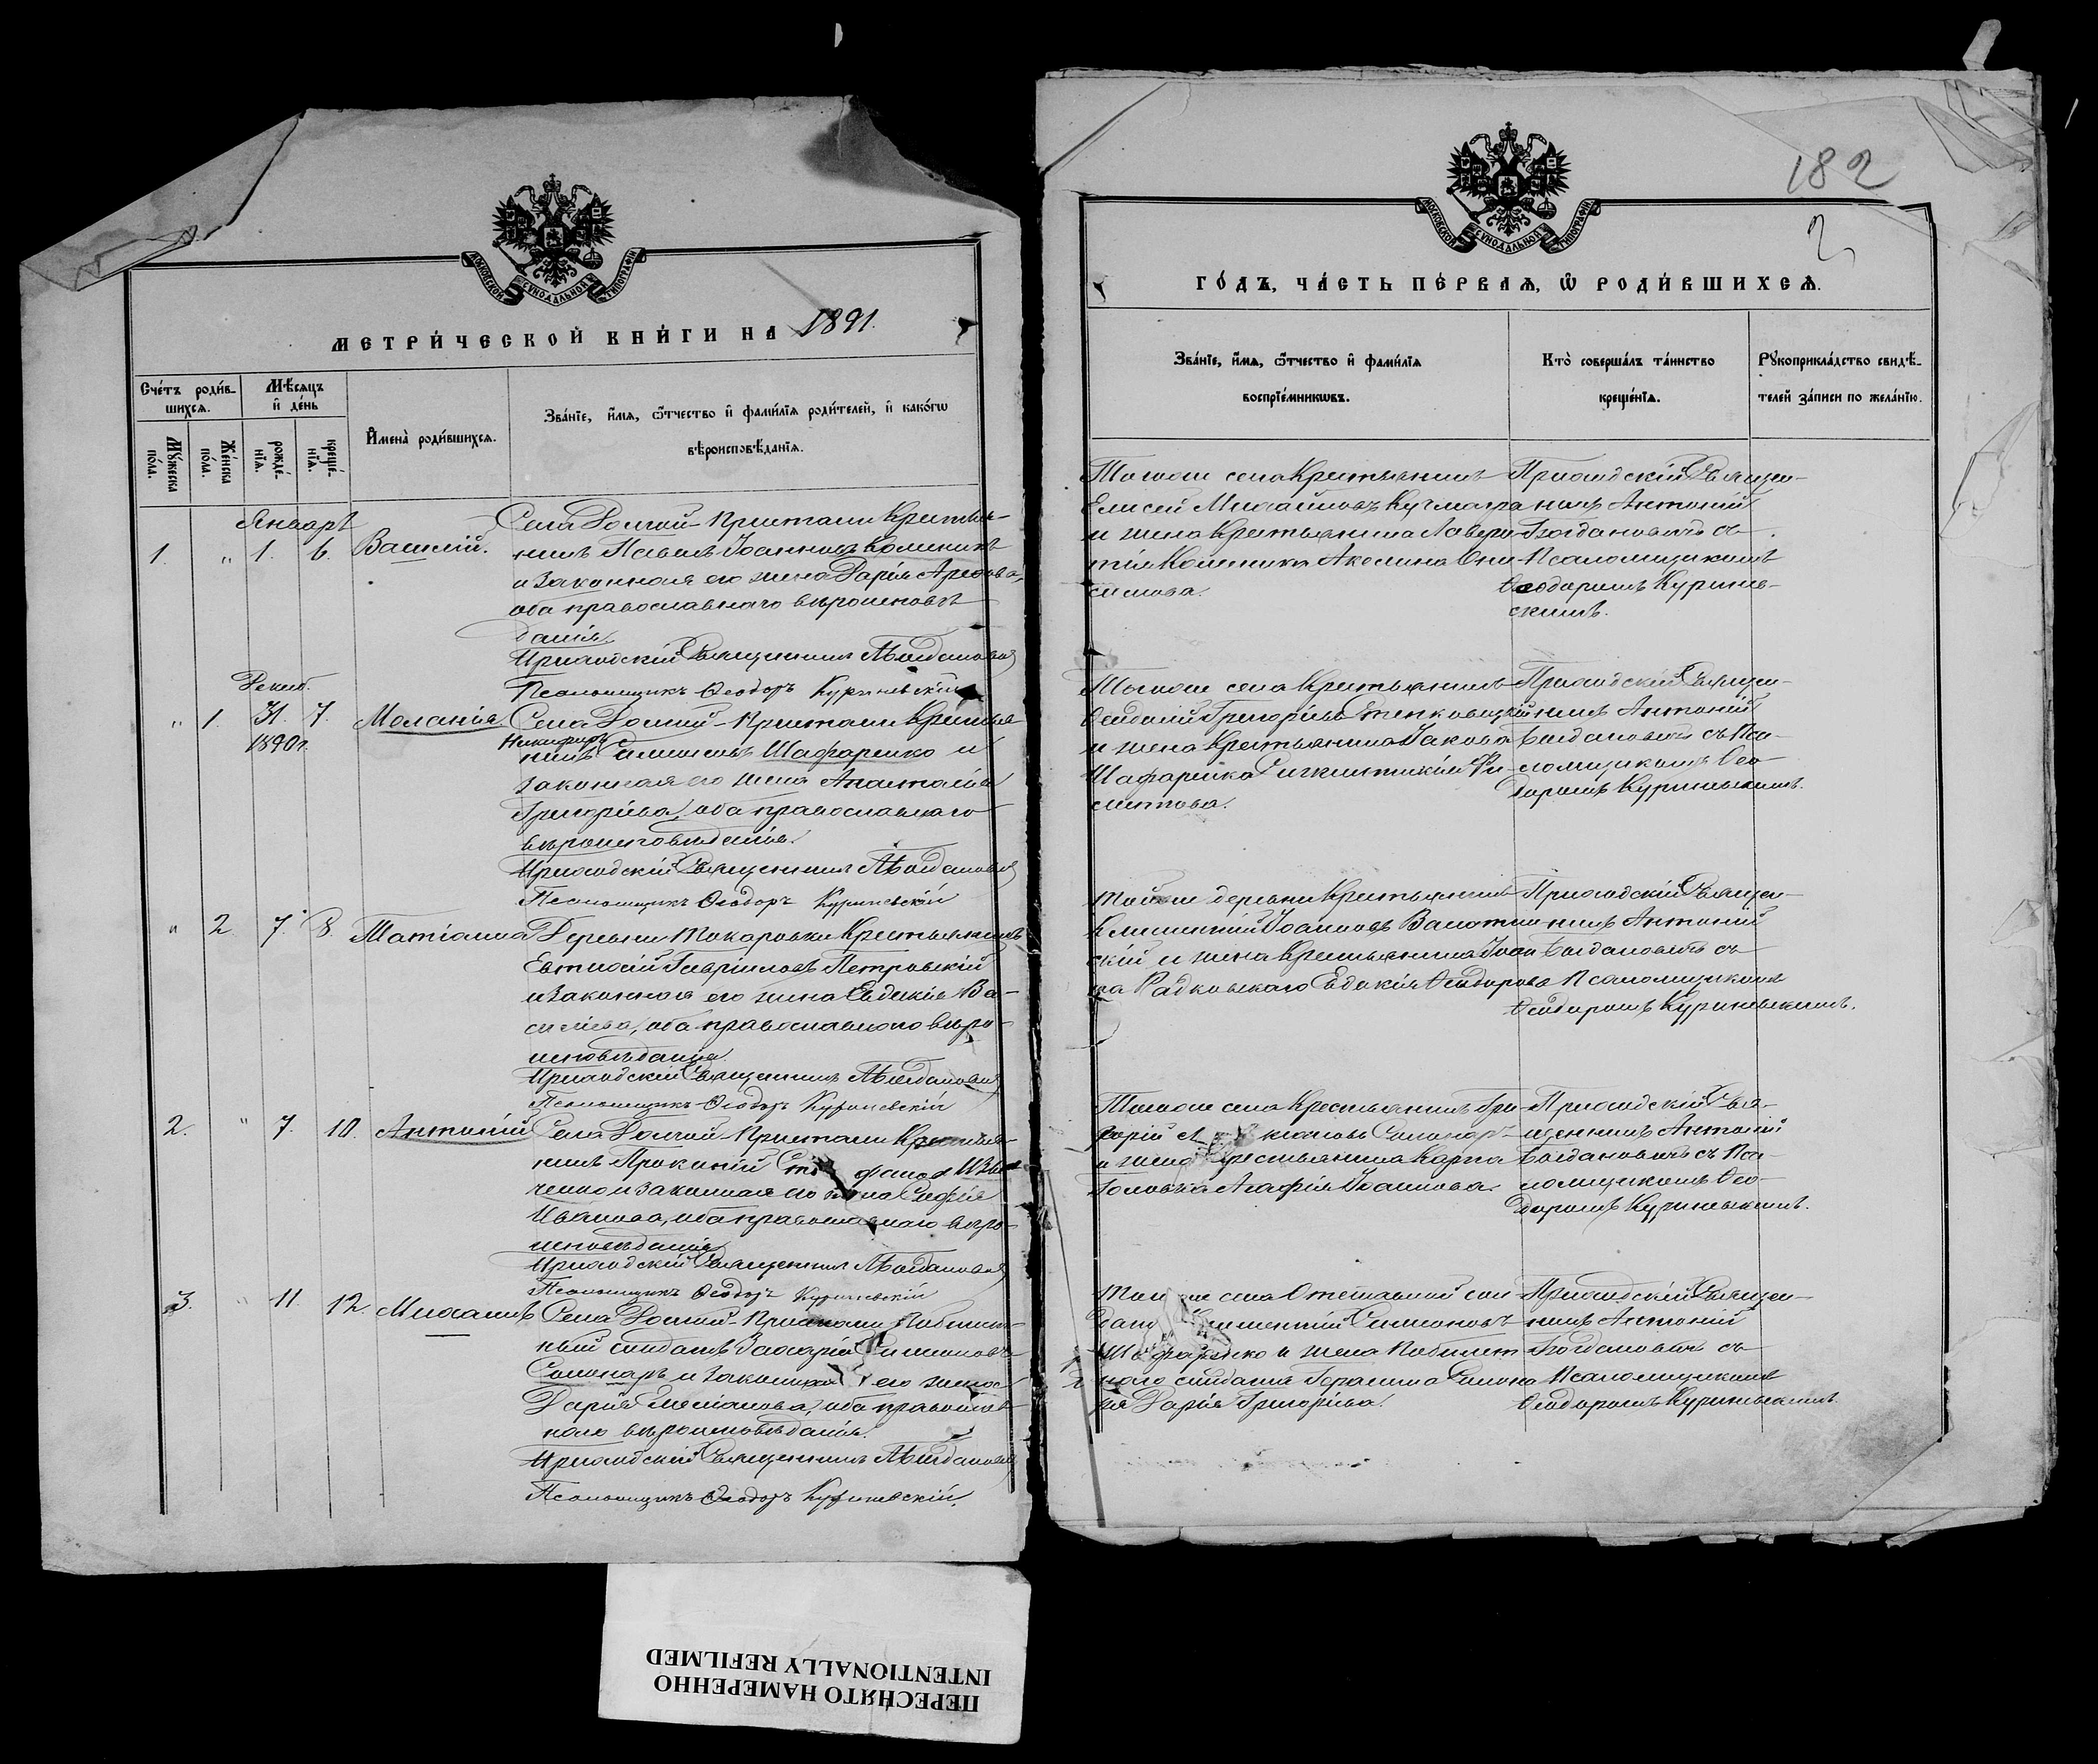 МОСКОВСКОЙ СѴНОДАЛЬНОЙ ТИПОГРАФІИ
МЕТРИ́ЧЕСКОЙ КНИ́ГИ НА 1891.
Сче́тъ роди́вшихсѧ.
Мѣ́сѧцъ и҆ де́нь
И҆мена̀ роди́вшихсѧ.
Зва́нїе, и҆́мѧ, ѻ҆́тчество и҆ фами́лїѧ роди́телей, и҆ како́гѡ
вѣроисповѣ́данїѧ.
Мꙋ́жеска по́ла.
Же́нска по́ла.
рожде́нїѧ.
креще́нїѧ.
Январь
1. " 1. 6. Василій.
Села Долгой-Пристани Крестья-
нинъ Павелъ Іоанновъ Колесникъ
и законная его жена Дарія
оба православнаго вѣроисповѣ
данія.
Приходскій Священникъ А Богдановичъ
Псаломщикъ Ѳеодоръ Куриневскій
Декаб.
" 1. 31. 7. Меланія
1890 г.
Села Долгой-Пристани Крестья
Никифоръ
нинъ Симоновъ Шафаренко и
законная его жена Анастасія
Григорьева, оба православнаго
вѣроисповѣданія.
Приходскій Священникъ А Богдановичъ
Псаломщикъ Ѳеодоръ Куриневскій
" 2. 7. 8. Татіанна
Деревни Токаровки Крестьянинъ
Евтихій Гавріиловъ Петровскій
и законная его жена Евдокія Ва-
сильева, оба православнаго вѣро-
исповѣданія.
Приходскій Священникъ А Богдановичъ
Псаломщикъ Ѳеодоръ Куриневскій
2. " 7. 10. Антоній
Села Долгой-Пристани Крестья-
нинъ Прокопій
и законная его жена Софія
Иванова, оба православнаго вѣро-
исповѣданія
Приходскій Священникъ А Богдановичъ
Псаломщикъ Ѳеодоръ Куриневскій
3. " 11. 12. Михаилъ
Села Долгой-Пристани Побилет-
ный солдатъ Захарій Симоновъ
Соломаръ и законная его жена
Дарія Емеліанова, оба православ
наго вѣроисповѣданія.
Приходскій Священникъ А Богдановичъ
Псаломщикъ Ѳеодоръ Куриневскій.
182
2
МОСКОВСКОЙ СѴНОДАЛЬНОЙ ТИПОГРАФІИ
ГО́ДЪ, ЧА́СТЬ ПЕ́РВАѦ, Ѽ РОДИ́ВШИХСѦ.
Зва́нїе, и҆́мѧ, ѻ҆́тчество и҆ фами́лїѧ
воспрїе́мникѡвъ.
Кто̀ соверша́лъ та́инство
креще́нїѧ.
Рꙋкоприкла́дство свидѣ́-
телей за́писи по жела́нїю.
Тогоже села Крестьянинъ
Елисей Михайловъ Кучмагра
и жена Крестьянина Лаврен-
тія Колесника Акелина Они-
симова.
Приходскій Священ-
никъ Антоній
Богдановичъ съ
Псаломщикомъ
Ѳеодоромъ Куринев-
скимъ.
Тогоже села Крестьянинъ
Ѳеодосій Григорьевъ Степковецкій
и жена Крестьянина Іакова
Шафаренка Синклитикія Фи-
липова.
Приходскій Священ-
никъ Антоній
Богдановичъ съ Пса-
ломщикомъ Ѳео-
доромъ Куриневскимъ.
Тойже деревни Крестьянинъ
Климентій Іоанновъ
скій и жена Крестьянина Іоан
на Радковскаго Евдокія Ѳеодорова
Приходскій Священ-
никъ Антоній
Богдановичъ съ
Псаломщикомъ
Ѳеодоромъ Куриневскимъ.
Тогоже села Крестьянинъ Гри-
горій Соломар
и жена Крестьянина Карпа
Головка Агафія Іоаннова.
Приходскій Свя-
щенникъ Антоній
Богдановичъ съ Пса-
ломщикомъ Ѳео-
доромъ Куриневскимъ.
Тогоже села Отставной сол
датъ Климентій Симоновъ
Шафаренко и жена Побилет
наго солдата Герасима
Дарія Григорьева.
Приходскій Священ-
никъ Антоній
Богдановичъ съ
Псаломщикомъ
Ѳеодоромъ Куриневскимъ.
ПЕРЕСНЯТО НАМЕРЕННО
INTENTIONALLY REFILMED